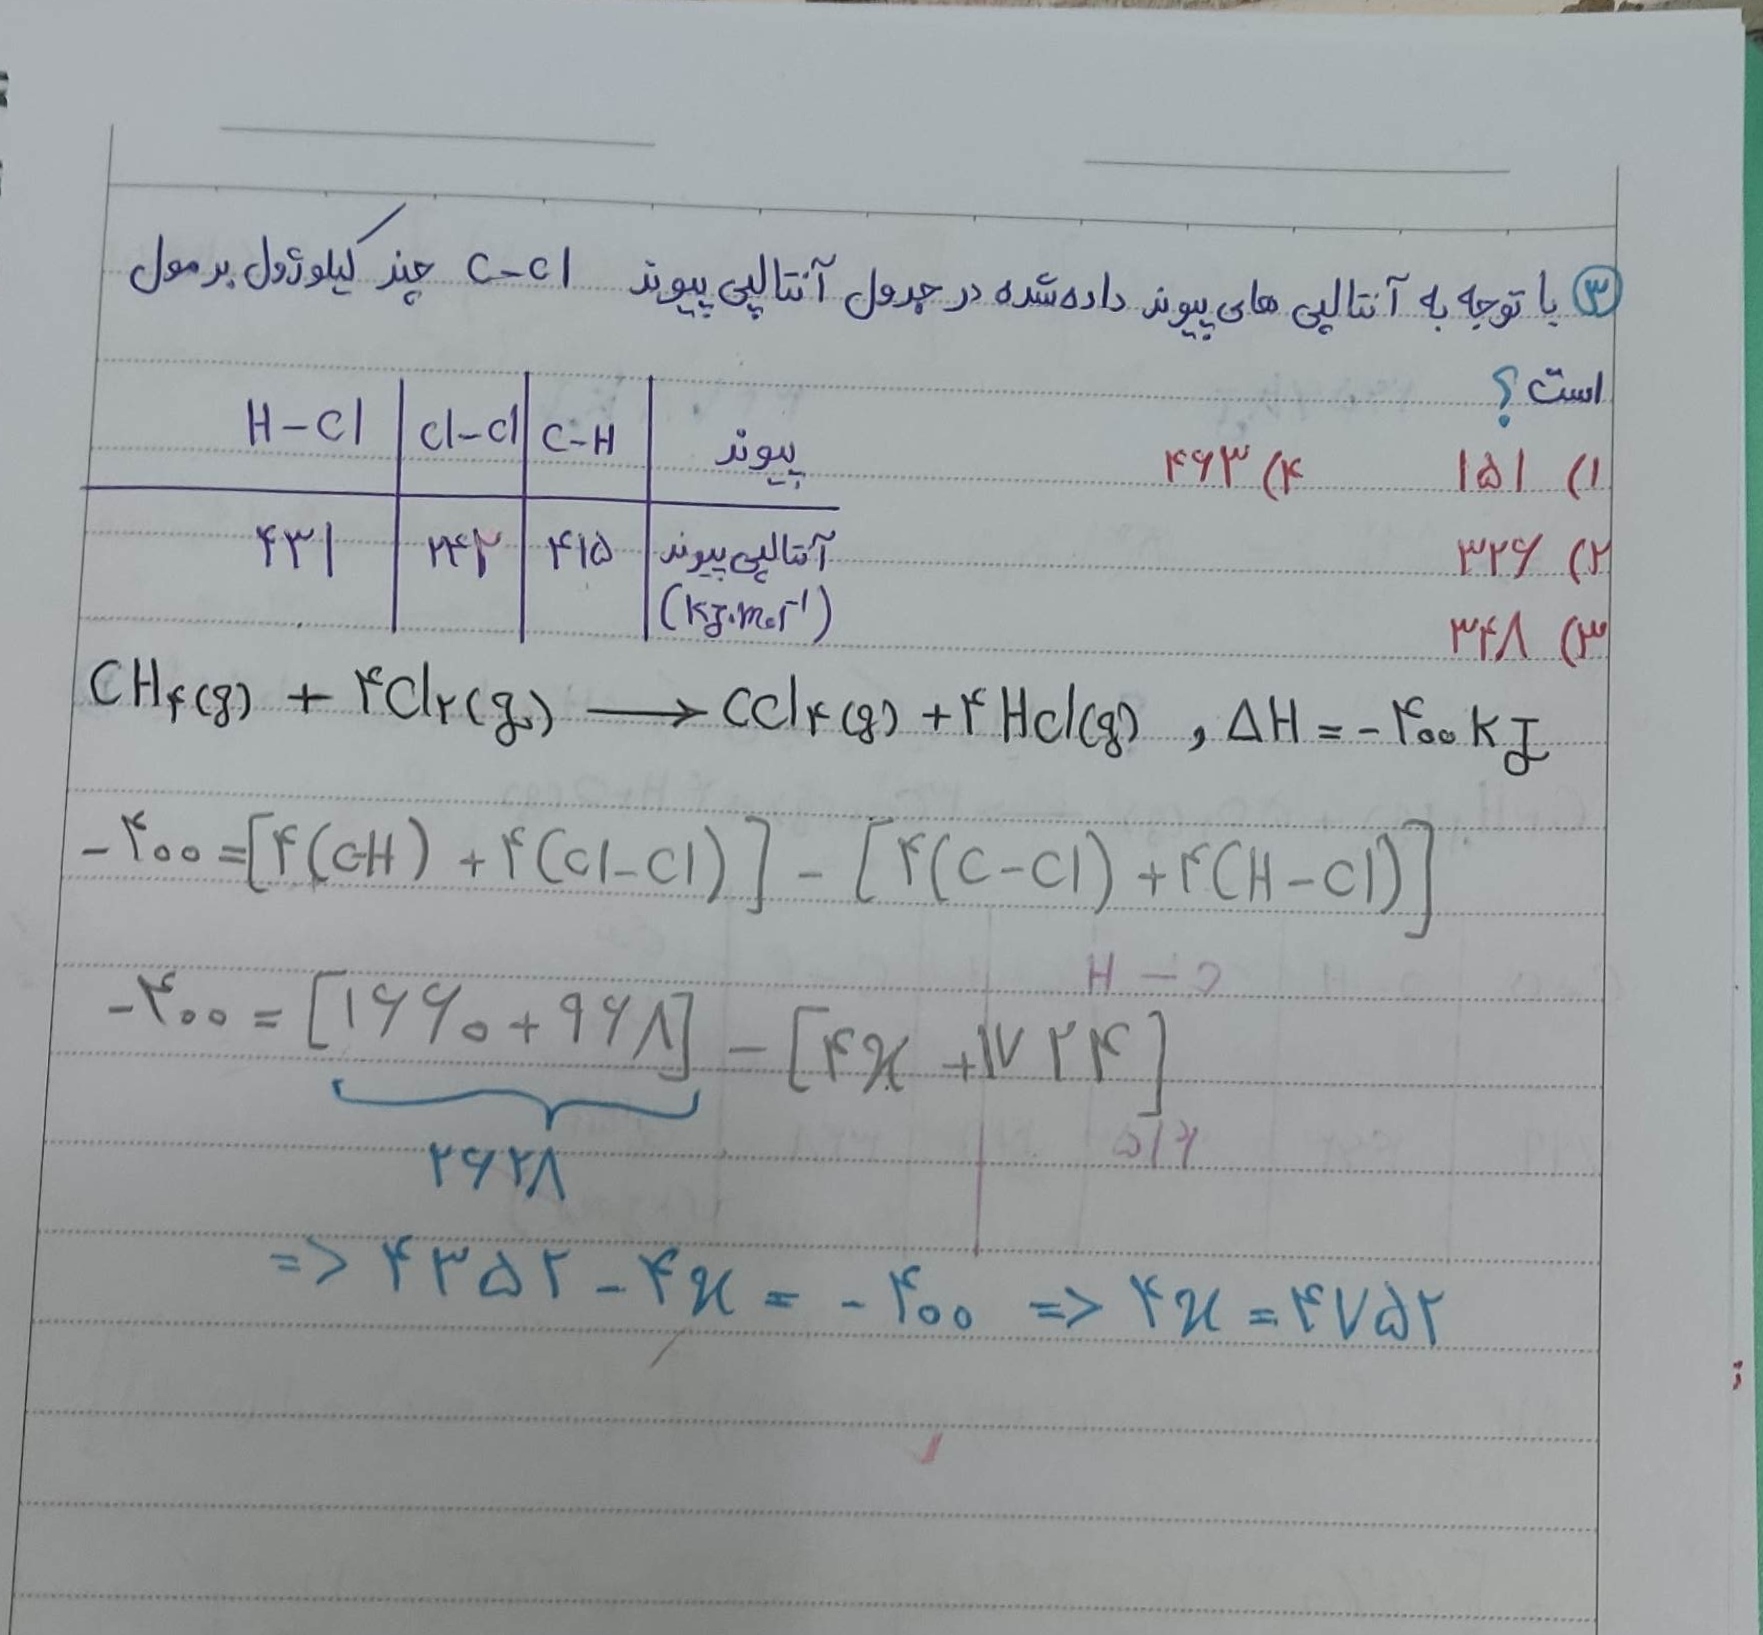 ۳ با توجه به آنتالپی های پیوند داده شده در جدول آنتالپی پیوند C-Cl چند کیلوژول بر مول
است ؟
۱) ۱۵۱
۴) ۴۶۳
۲) ۳۲۶
۳) ۳۴۸
پیوند C-H Cl-Cl H-Cl
آنتالپی پیوند ۴۱۵ ۲۴۲ ۴۳۱
(kJ.mol⁻¹)
CH۴(g) + ۴Cl۲(g) ⟶ CCl۴(g) + ۴HCl(g) , ΔH = -۴۰۰ kJ
-۴۰۰ = [۴(C-H) + ۴(Cl-Cl)] - [۴(C-Cl) + ۴(H-Cl)]
-۴۰۰ = [۱۶۶۰ + ۹۶۸] - [۴x + ۱۷۲۴]
۲۶۲۸
=> ۴۳۵۲ - ۴x = -۴۰۰ => ۴x = ۴۷۵۲